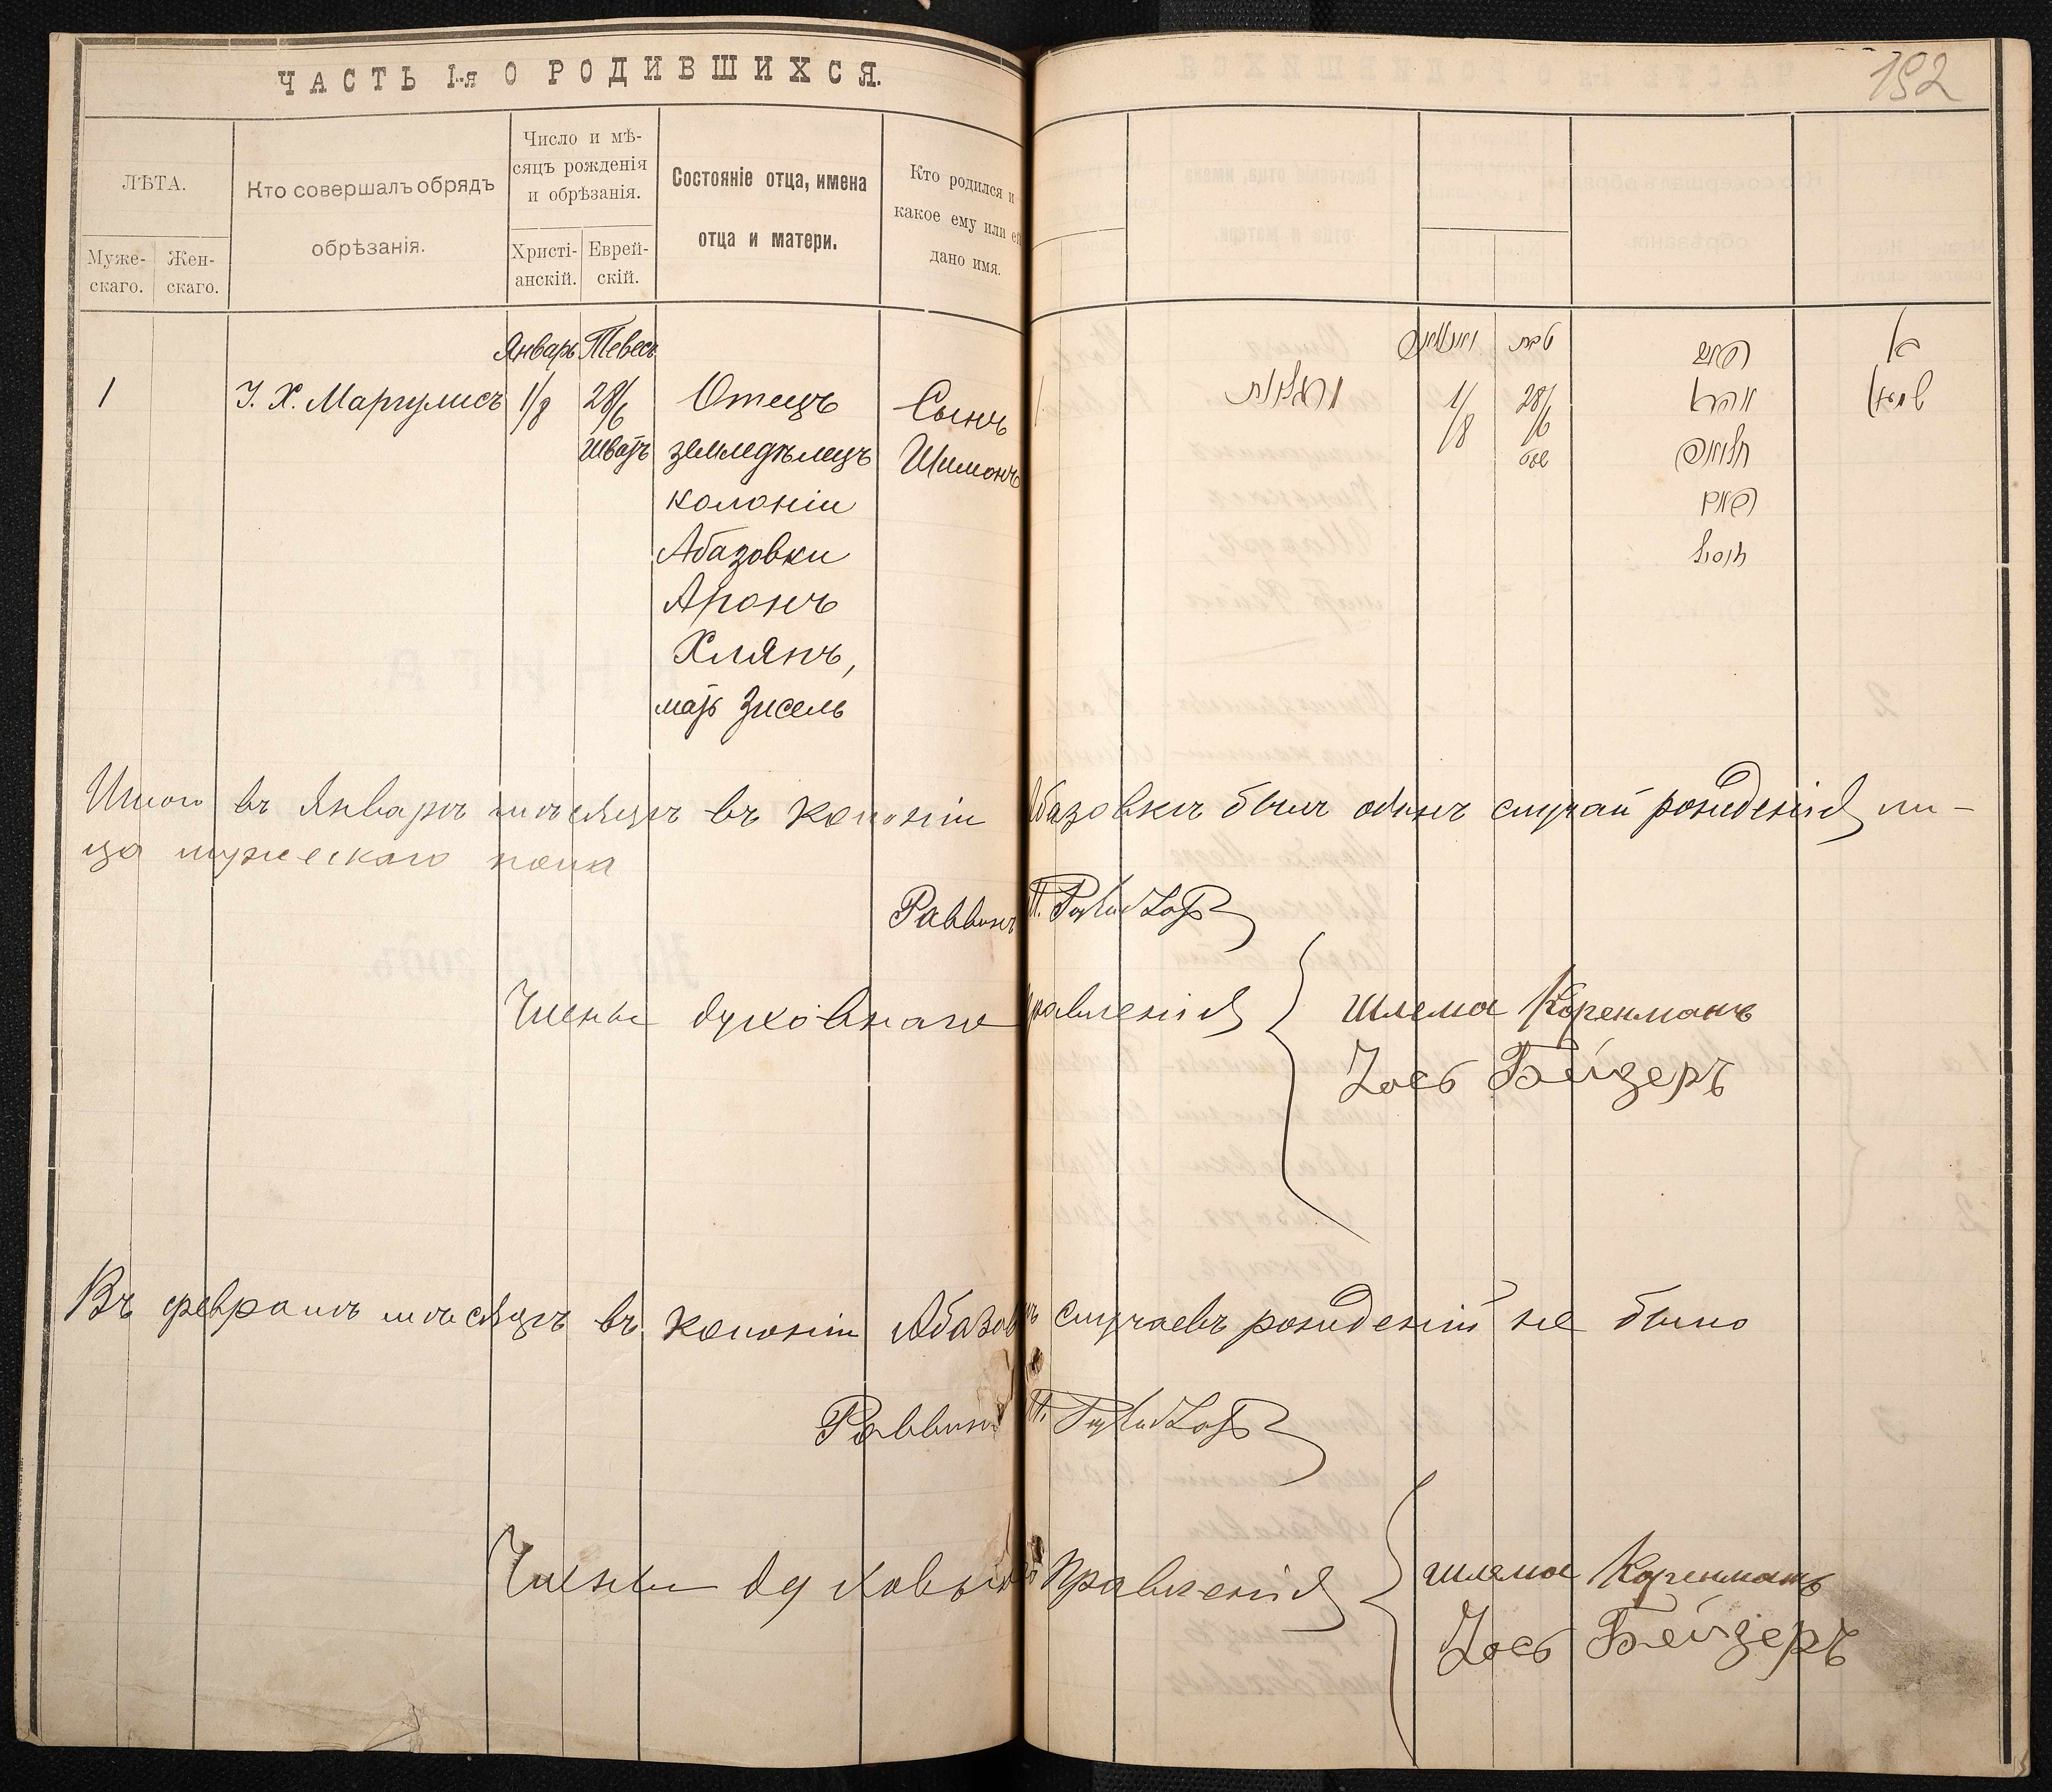 ЧАСТЬ I-я О РОДИВШИХСЯ.
192
ЛѢТА.
Муже-
скаго.
Жен-
скаго.
Кто совершалъ обрядъ
обрѣзанія.
Число и мѣ-
сяцъ рожденія
и обрѣзанія.
Христі-
анскій.
Еврей-
скій.
Состояніе отца, имена
отца и матери.
Кто родился и
какое ему или ей
дано имя.
Январь Тевесъ
1 І. Х. Маргулисъ 1/8 28/6 Отецъ Сынъ
Шватъ земледѣлецъ Шимонъ
колоніи
Абазовки
Аронъ
Хлянъ,
мать Зисель
טבת
1/8 28/6
שבט
Итого въ Январѣ мѣсяцѣ въ колоніи Абазовкѣ былъ одинъ случай рожденія ли-
ца мужескаго пола
Раввинъ
Члены духовнаго правленія Шлема Коренманъ
Іось Бейдеръ
Въ февралѣ мѣсяцѣ въ колоніи Абазовкѣ случаевъ рожденій не было
Раввинъ
Члены духовнаго правленія Шлема Коренманъ
Іось Бейдеръ